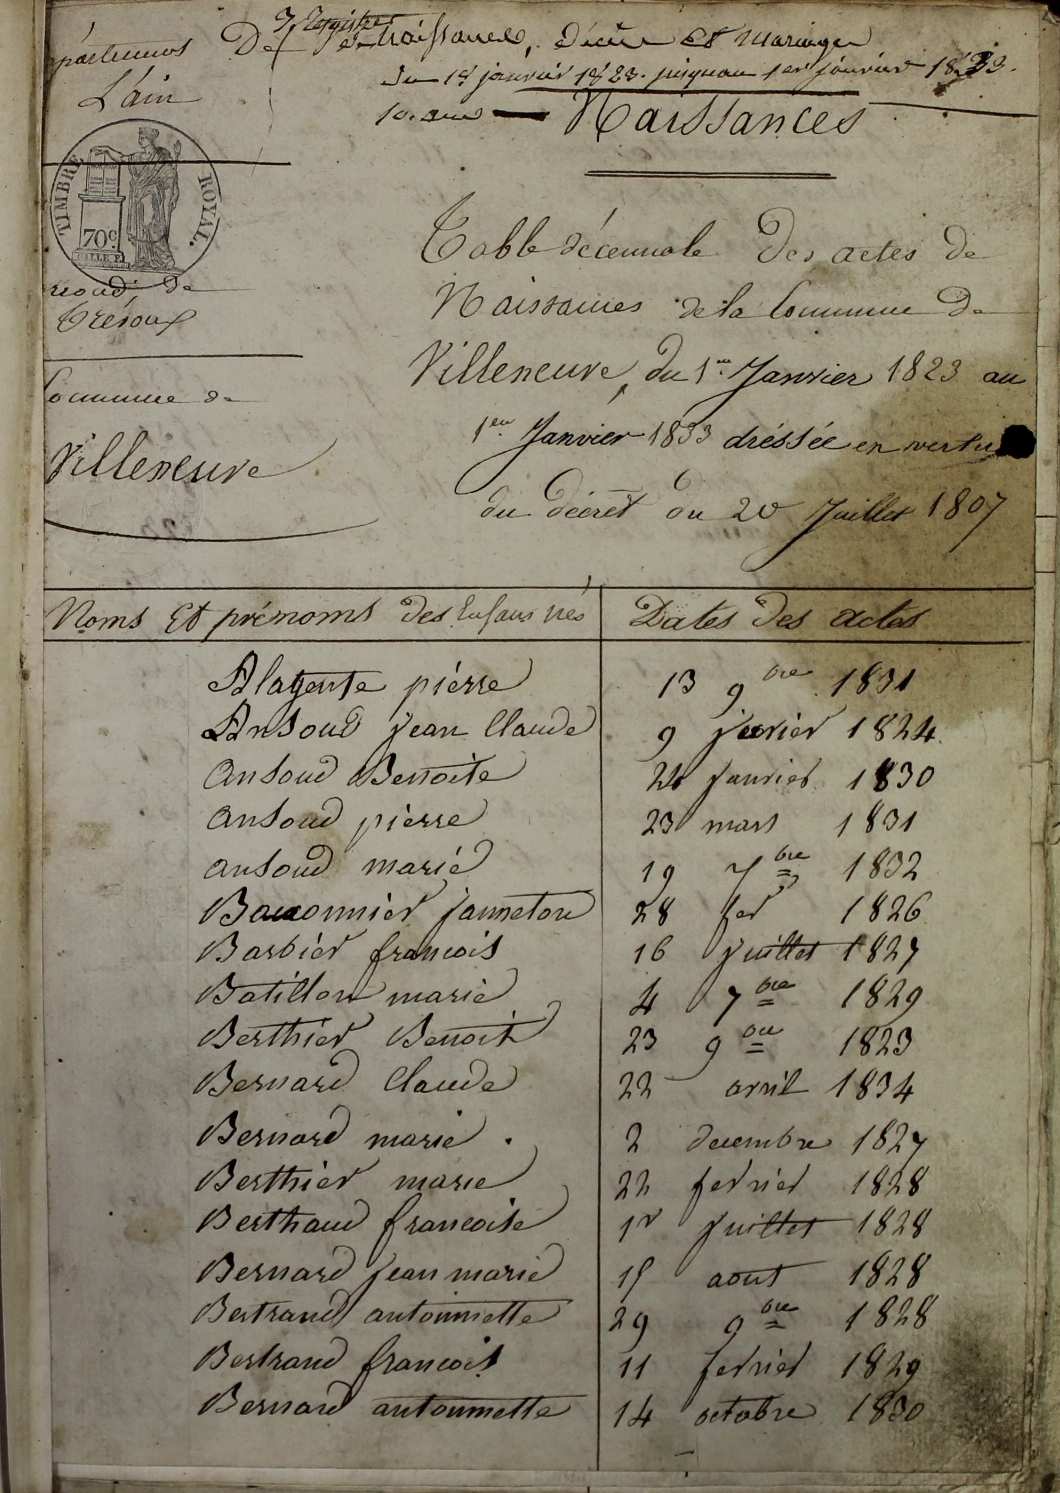 Registre
De naissance, décès et mariages
Du 1er janvier 1823. jusquau 1er janvier 1833.
10. ans — Naissances
partement
L'ain
TIMBRE ROYAL.
70c
de
Trévoux
Commune de
Villeneuve
Table décennale des actes de
Naissances de la Commune de
Villeneuve, du 1er Janvier 1823 au
1er Janvier 1833 dréssée en vertu
du décret du 20 Juillet 1807
Noms Et prénoms des Enfans nés Dates des actes
Alagente piérre 13 9bre 1831
Ansoud jean Claude 9 1824
ansoud Benoite 24 janvier 1830
ansoud pierre 23 mars 1831
ansoud marié 19 7bre 1832
janneton 28 fer 1826
Barbiér francois 16 juillet 1827
Batillon marie 4 7bre 1829
Berthiér Benoit 23 9bre 1823
Bernard Claude 22 avril 1834
Bernard marie . 2 decembre 1827
Berthiér marie 22 fevriér 1828
Berthaud francoise 1r juillet 1828
Bernard jean marié 15 aout 1828
Bertrand antoinnette 29 9bre 1828
Bertrand francois 11 fevriér 1829
Bernard antoinnette 14 octobre 1830